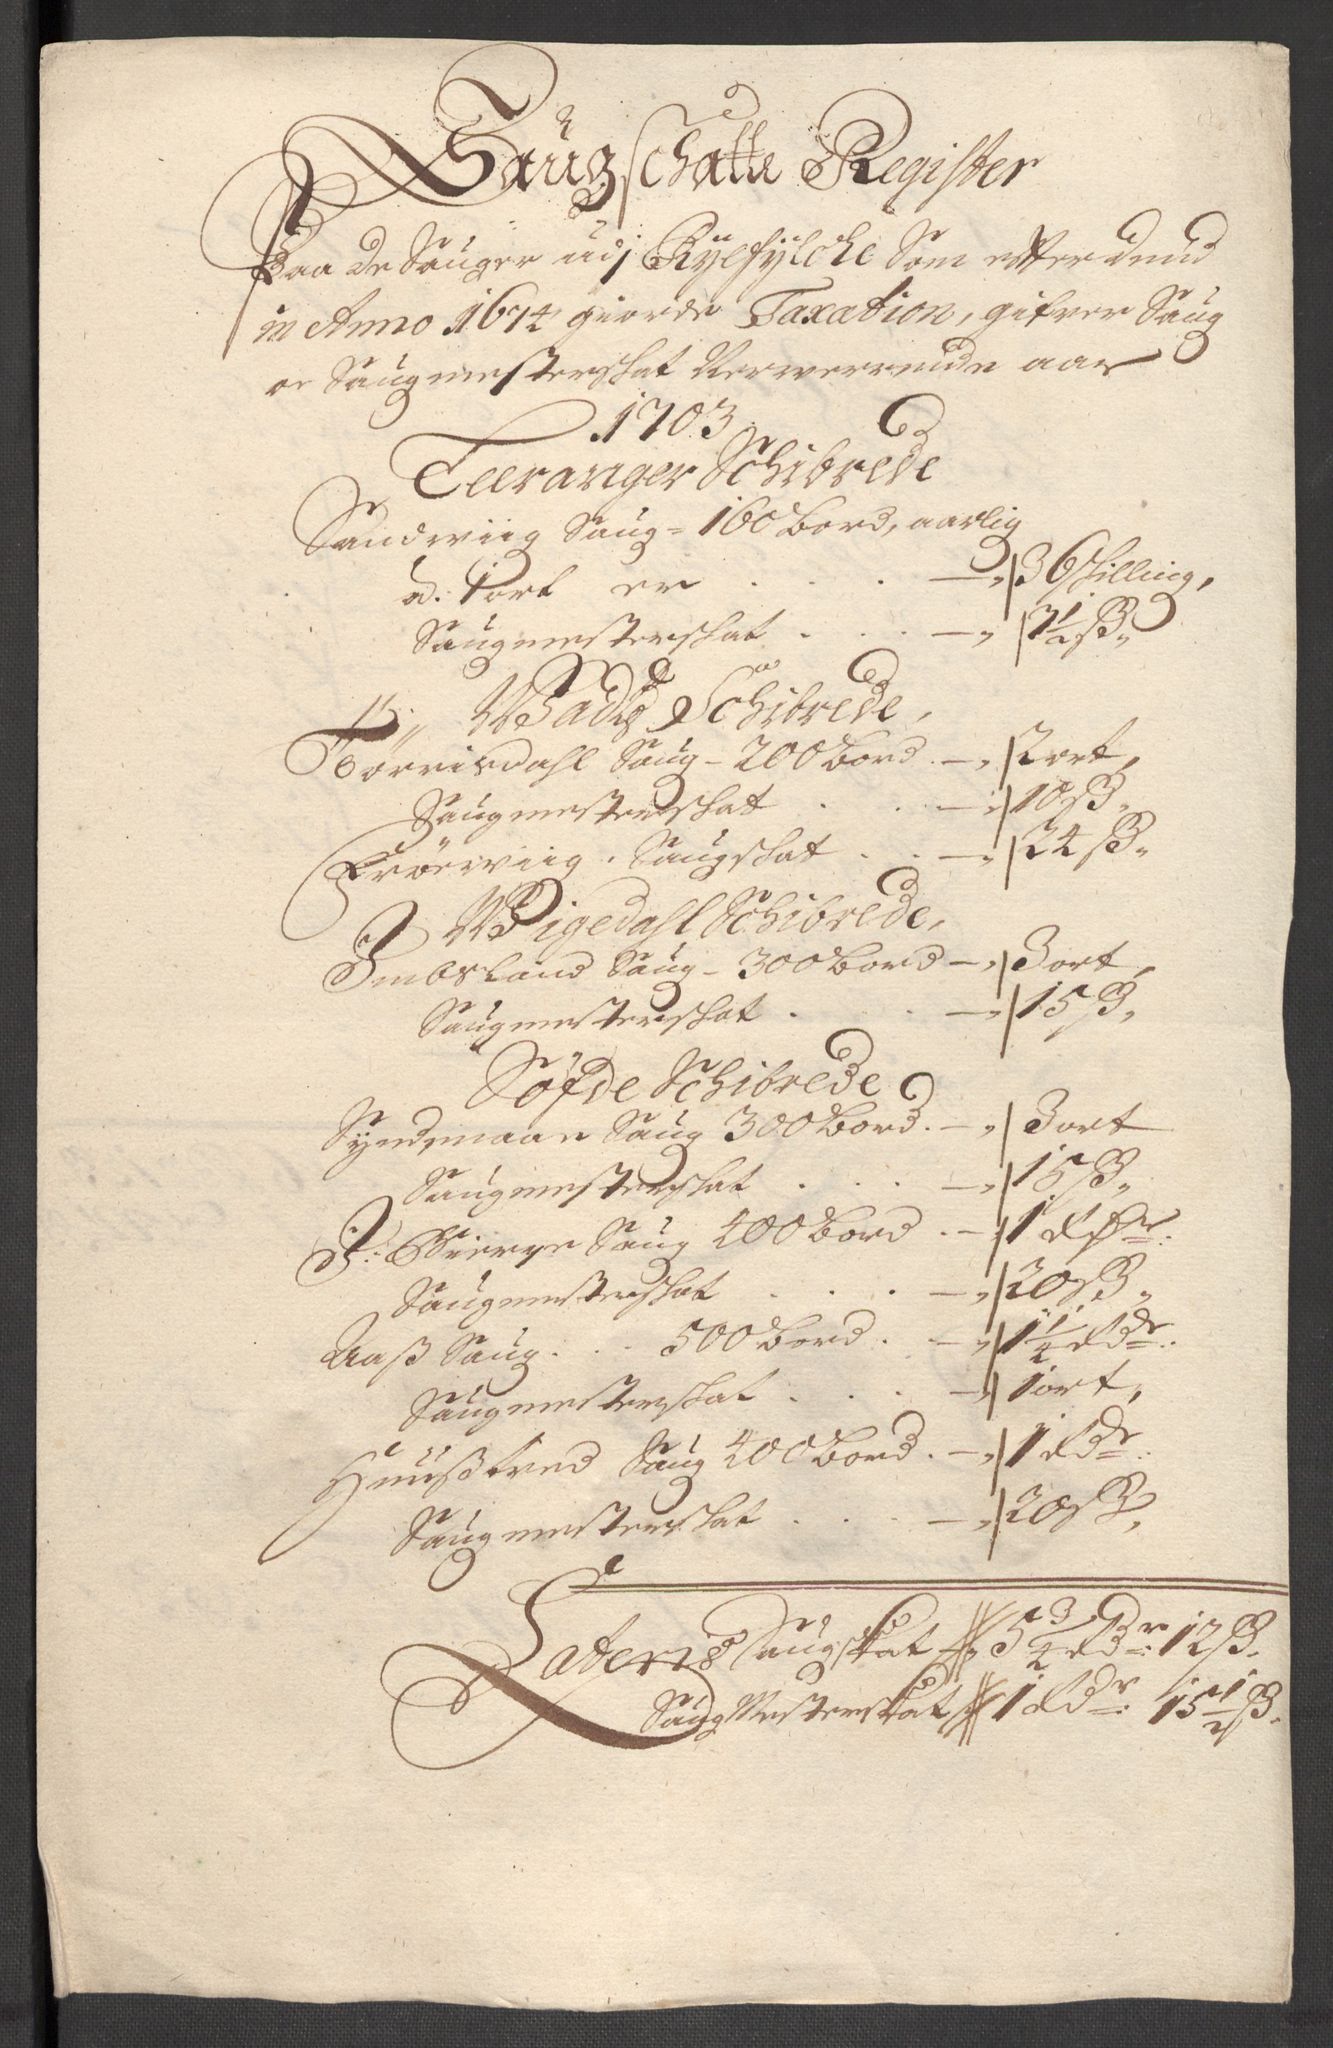 Saugschatte Register
Paa De Sauger udj Ryefylche Som efter dend
in Anno 1674 giorde Taxation, gifver Saug
oc Saugmesterschat Nerverrende aar
1703
Jeeranger Schibrede
Sandwiig Saug = 160 bord, aarlig
a. 1 ort er . . . — 36 schilling,
Saugmesterschat . . . — 7½ ß.
Wadtz Schibrede,
Førrisdahl Saug – 200 bord . — 2 ort,
Saugmesterschat . . . — 10 ß.
Frøerviig . Saugschat . . — 24 ß.
Wigedahl Schibrede,
Imbsland Saug – 300 bord — 3 ort,
Saugmesterschat . . . — 15 ß.
Søfde Schibrede
Syndenaae Saug 300 bord . — 3 ort
Saugmesterschat . . . — 15 ß.
I: Bierge Saug 400 bord . — 1 Rdr.
Saugmesterschat . . . — 20 ß.
Aaß Saug . . . 500 bord . — 1¼ Rdr.
Saugmesterschat . . . — 1 ort,
Huußtved Saug 400 bord . — 1 Rdr.
Saugmesterschat . . . — 20 ß.
Lateris Saugskat 5¾ Rdr: 12 ß.
Saug Mesterskat 1 Rdr: 15½ ß.